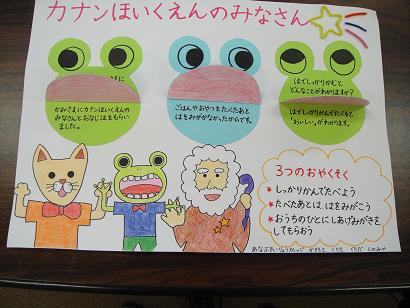 カナンほいくえんのみなさん
さまに
かみさまにカナンほいくえんの
みなさんとおなじはをもらい
ました。
ごはんやおやつをたべたあと
はをみががなかったからです。
はでしっかりかむと
どんなことがわかりますか？
はでしっかりかんでたべると
「おいしい」がわかります。
3つのおやくそく
★しっかりかんでたべよう
★たべたあとは、はをみがこう
★おうちのひとにしあげみがきを
してもらおう